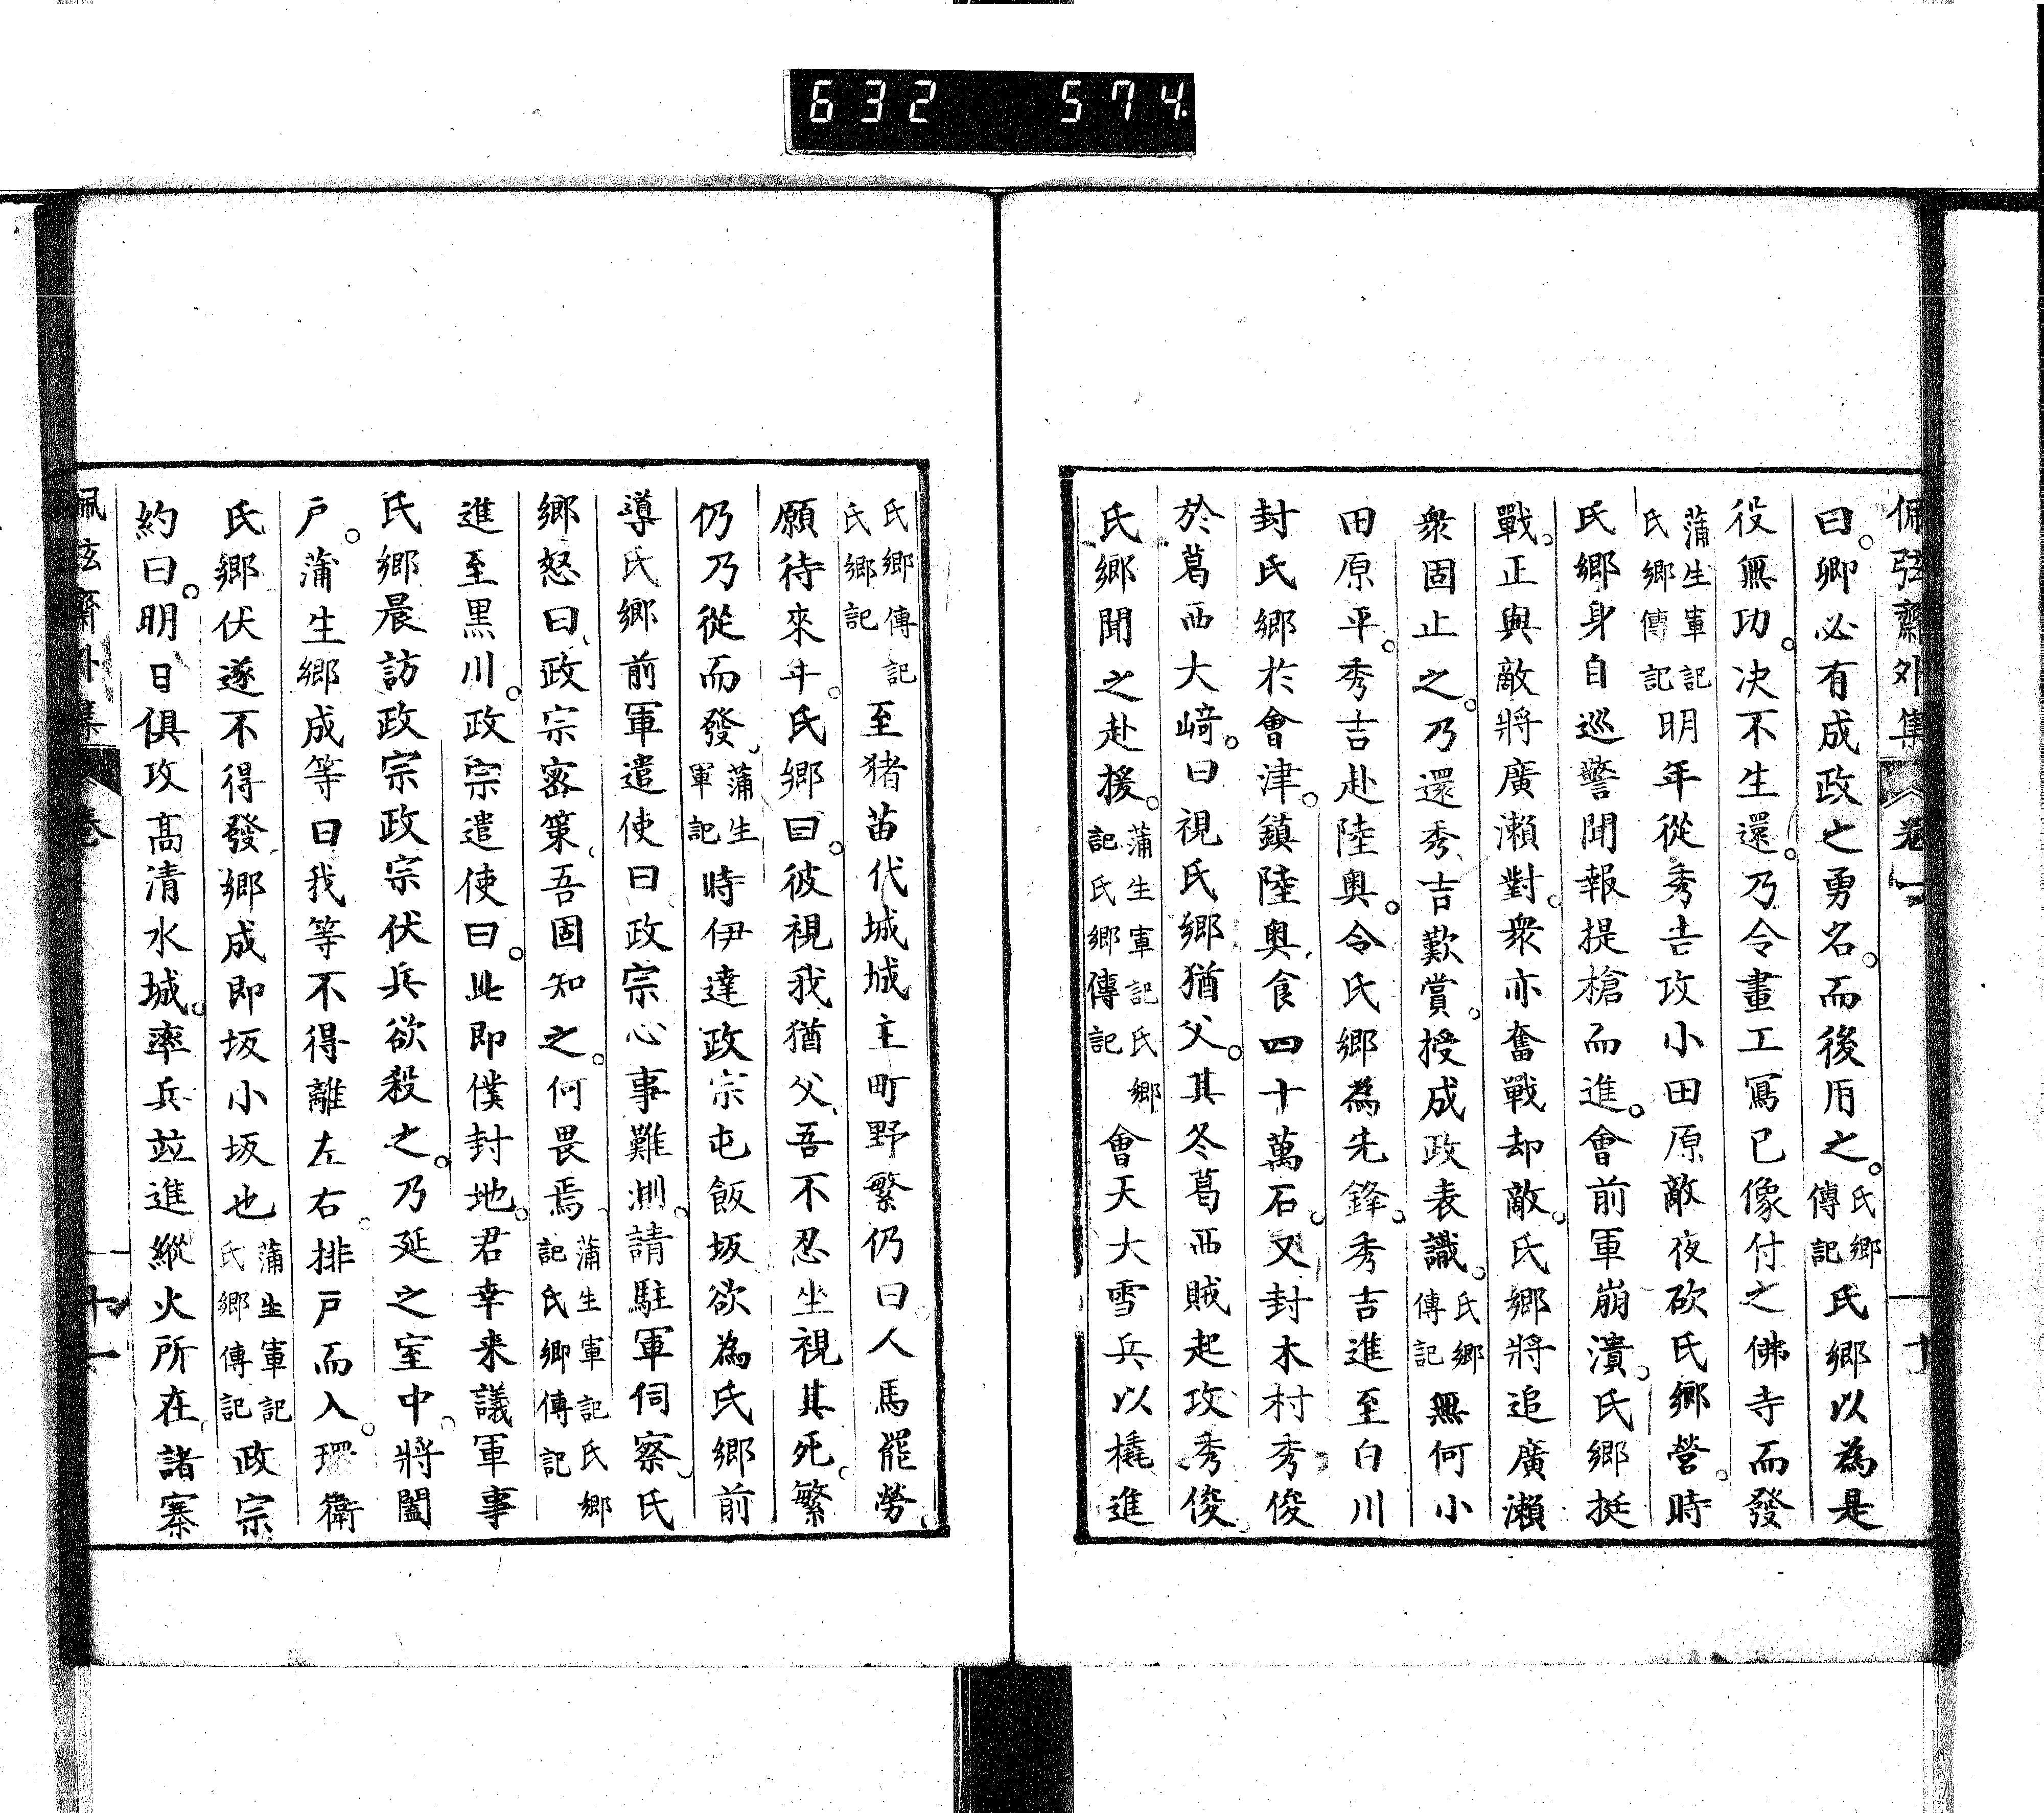 632 574
佩弦齋外集 卷一 十
曰。卿必有成政之勇名。而後用之。氏郷傳記氏郷以為是
役無功。决不生還。乃令畫工寫已像付之佛寺而發
蒲生軍記氏郷傳記明年從秀吉攻小田原敵夜砍氏郷營。時
氏郷身自巡警聞報提槍而進。會前軍崩潰。氏郷挺
戰。正與敵將廣瀨對。衆亦奮戰却敵。氏郷將追廣瀨
衆固止之。乃還秀吉歎賞。授成政表識。氏郷傳記無何小
田原平。秀吉赴陸奥。令氏郷為先鋒。秀吉進至白川
封氏郷於會津。鎮陸奥、食四十萬石。又封木村秀俊
於葛西大﨑。曰視氏郷猶父。其冬葛西賊起攻秀俊。
氏郷聞之赴援。蒲生軍記氏郷記氏郷傳記會天大雪兵以橇進
氏郷傳記氏郷記至猪苗代城城主町野繁仍曰人馬罷勞、
願待來年。氏郷曰。彼視我猶父、吾不忍坐視其死。繁
仍乃從而發、蒲生軍記時伊達政宗屯飯坂欲為氏郷前
導氏郷前軍遣使曰政宗心事難測。請駐軍伺察、氏
郷怒曰、政宗密策、吾固知之。何畏焉。蒲生軍記氏郷記氏郷傳記
進至黒川。政宗遣使曰。此即僕封地。君幸来議軍事
氏郷晨訪政宗政宗伏兵欲殺之。乃延之室中。將闔
戸。蒲生郷成等曰我等不得離左右。排戸而入。環衛
氏郷伏遂不得發、郷成即坂小坂也蒲生軍記氏郷傳記政宗
約曰。明日俱攻髙清水城。率兵竝進縱火所在諸寨
佩弦齋外集 卷 十一